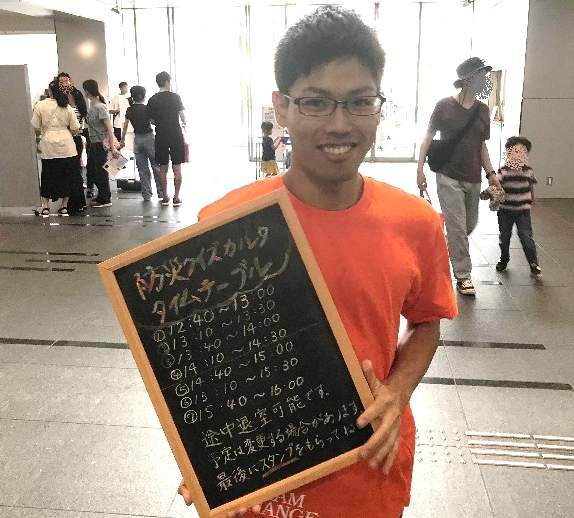 防災クイズカルタ
タイムテーブル
①12:40～13:00
②13:10～13:30
③13:40～14:00
④14:10～14:30
⑤14:40～15:00
⑥15:10～15:30
⑦15:40～16:00
途中退室可能です。
予定は変更する場合があります
最後にスタンプをもらってね
AM
ANGE